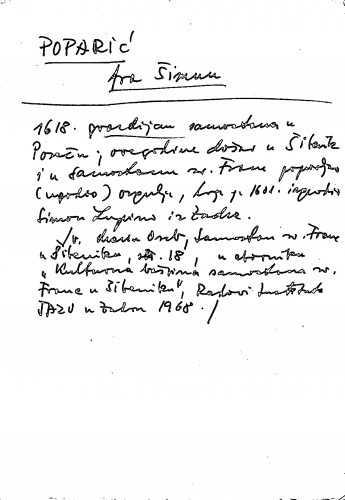 POPARIĆ
fra Šimun
1618. gvardijan samostana u
Poreču; ove godine došao u Šibenik
i u samostanu sv. Frane popravljao
(ugodio) orgulje, koje je 1601. izgradio
Simon Lupino iz Zadra.
/v. Krsto Stošić, Samostan sv. Frane
u Šibeniku, str. 18, u zborniku
"Kulturna baština samostana sv.
Frane u Šibeniku", Radovi Instituta
JAZU u Zadru 1968./